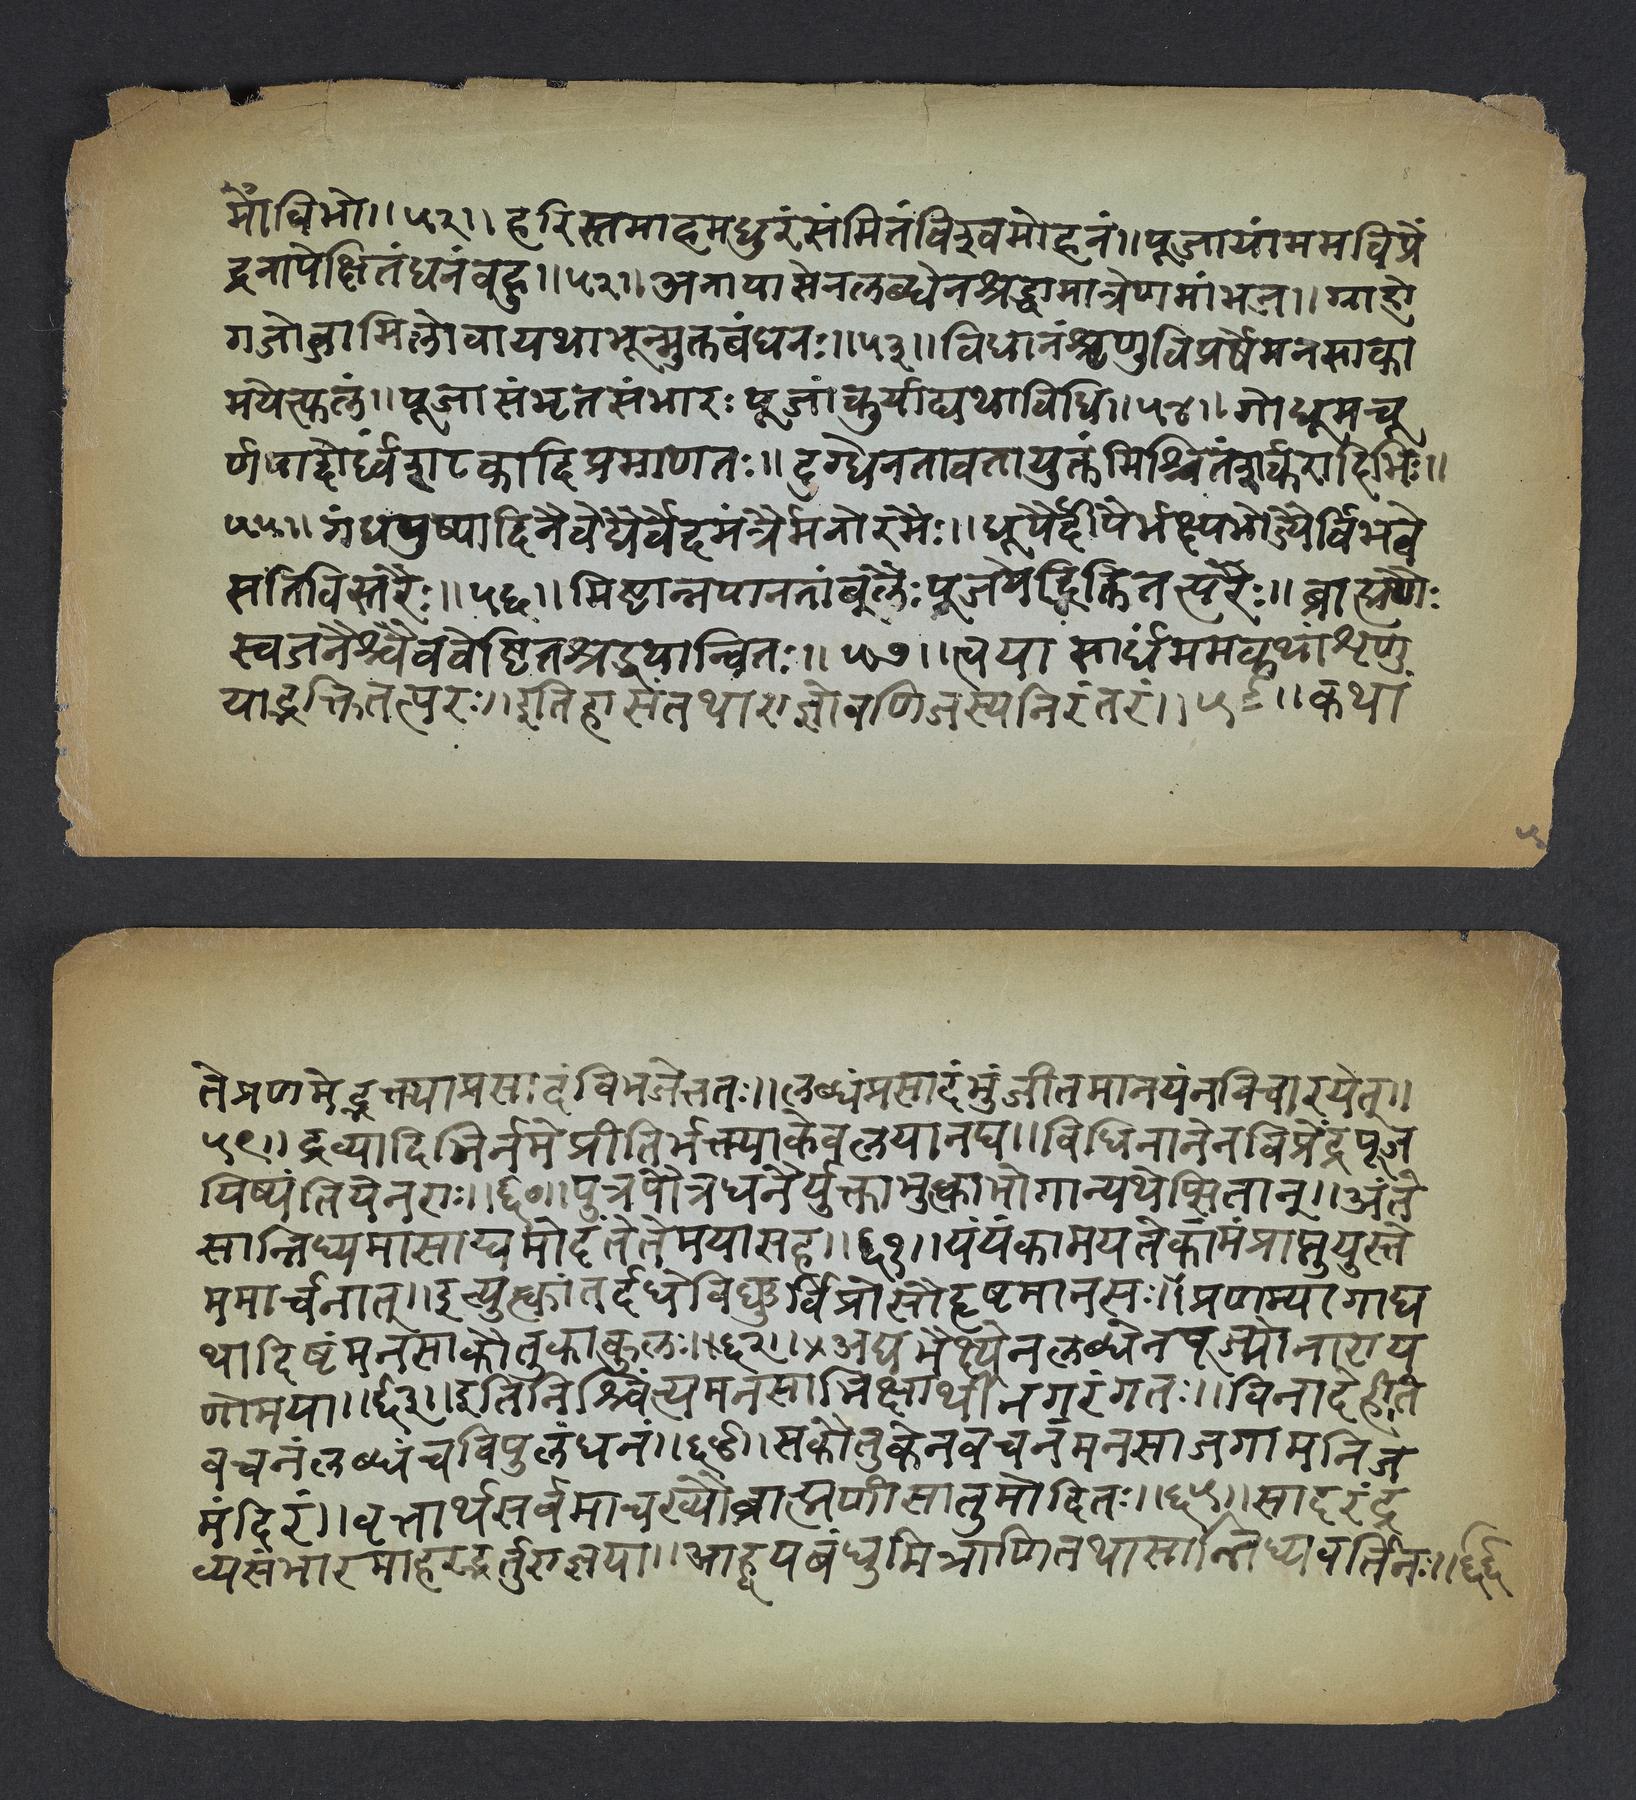 मांविभो॥५२॥हरिस्तमाहमधुरंसंमितंविश्वमोहनं॥पूजायांममविप्रें
द्रनापेक्षितंधनंवहु॥५२॥अनायासेनलब्धेनश्रद्धामात्रेणमांभज॥ग्राहो
गजोजामिलोवायथाभून्मुक्तबंधनः॥५३॥विधानंश्रृणुविप्रर्षेमनसाका
मयेत्फलं॥पूजासंभृतसंभारःपूजांकुर्याद्यथाविधि॥५४॥गोधूमचू
र्णपादोर्ध्वशाटकादिप्रमाणतः॥दुग्धेनतावतायुक्तंमिश्चितंशर्करादिभिः॥
५५॥गंधपुष्पादिनैवेद्यैर्वेदमंत्रैर्मनोरमैः॥धूपैर्दीपैर्भक्ष्यभोज्यैर्विभवे
सतिविस्तरैः॥५६॥मिष्टान्नपानतांबुलैःपूजयेद्भक्तितत्परैः॥ब्राह्मणैः
स्वजनैश्चैववेष्टितश्रद्धयान्वितः॥५७॥त्वयासार्धंममकथांशृणु
याद्भक्तितत्परः॥इतिहासंतथाराज्ञोवणिजस्यनिरंतरं॥५८॥कथां
तेप्रणमेद्भक्त्याप्रसादंविभजेत्ततः॥लब्धंप्रसादंभुंजीतमानयंनविचारयेत्॥
५९॥द्रव्यादिभिर्नमेप्रीतिर्भक्त्याकेवलयानघ॥विधिनानेनविप्रेंद्रपूज
यिष्यंतियेनराः॥६०॥पुत्रपौत्रधनैर्युक्ताभुक्त्काभोगान्यथेप्सितान्॥अंते
सान्निध्यमासाद्यमोदंतेतेमयासह॥६१॥यंयंकामयतेकामंप्राप्नुयुस्ते
ममार्चनात्॥इत्युक्त्कांतर्दधेविष्णुर्विप्रोसौहृष्टमानसः॥प्रणम्यागाद्य
थादिष्टंमनसाकौतुकाकुलः॥६२॥अद्यभैक्ष्येनलब्धेनपूज्योनाराय
णोमया॥६३॥इतिनिश्चिंत्यमनसाभिक्षार्थीनगरंगतः॥विनादेहीति
वचनंलब्धंचविपुलंधनं॥६४॥सकौतुकेनवचनंमनसाजगामनिज
मंदिरं॥वृत्तार्थसर्वमाचख्यौब्राह्मणीसातुमोदितः॥६५॥सादरंद्र
व्यसंभारमाहरद्भर्तुराज्ञया॥आहूयबंधुमित्राणितथासान्निध्यवर्तिनः॥६६